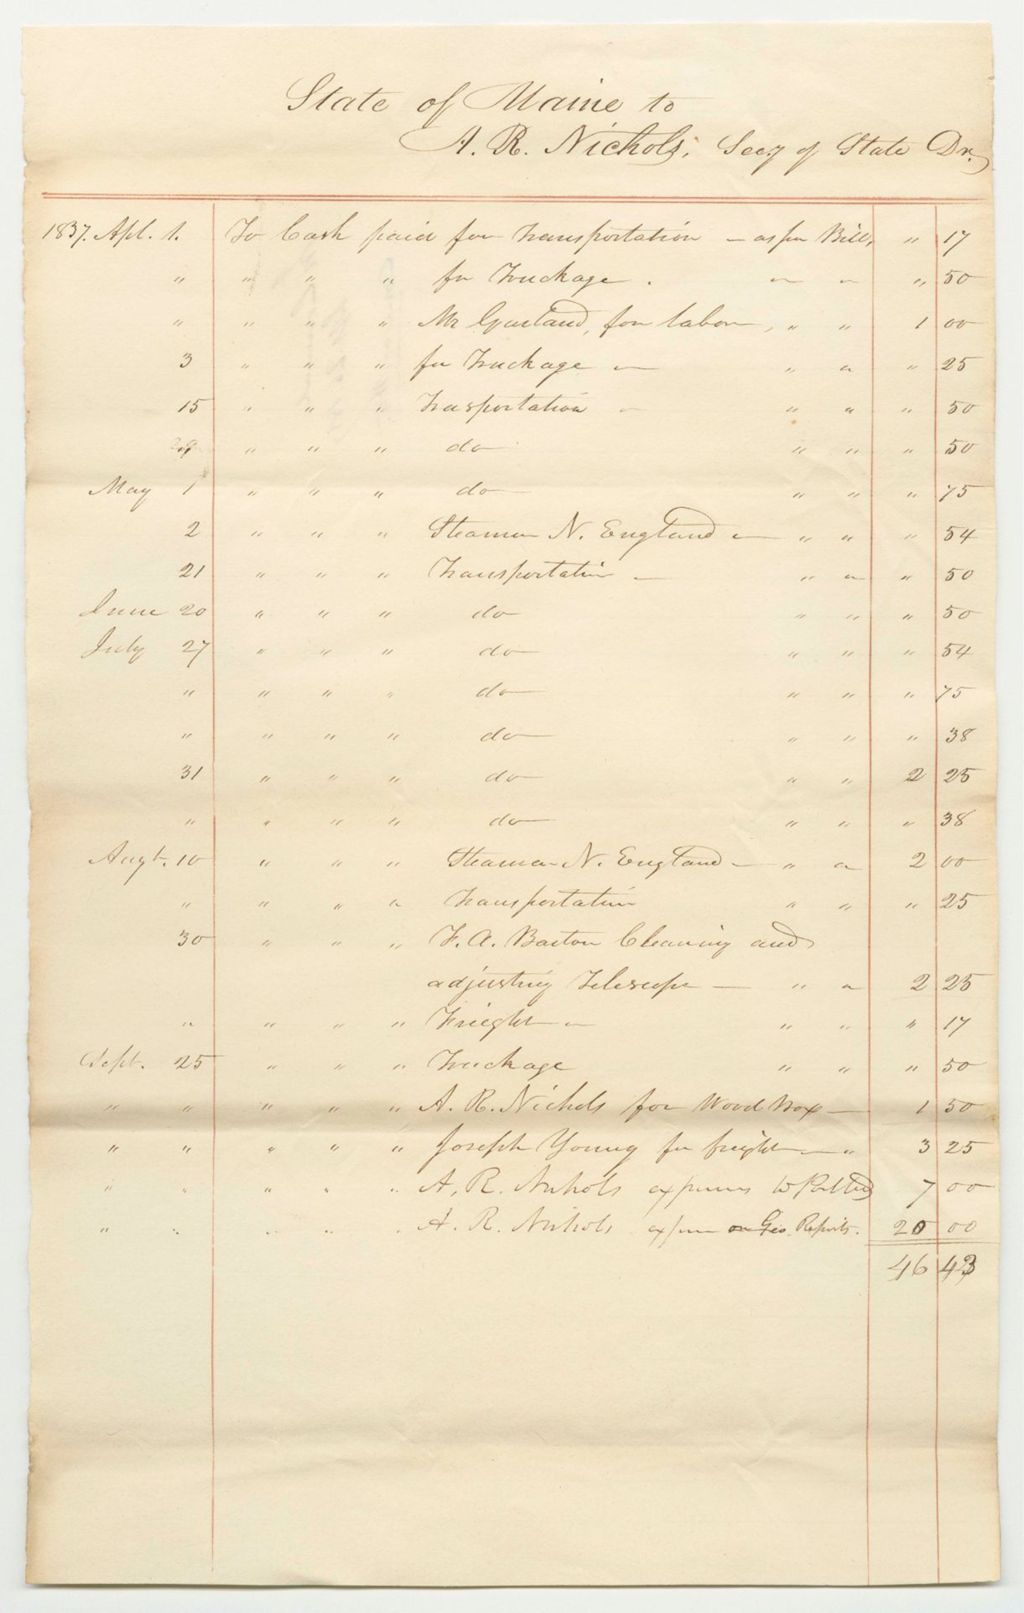 State of Maine to
A. R. Nichols, Secy of State Dr.
1837. Apl. 1. To Cash paid for Transportation - as per Bill, " 17
" " " " for Truckage . " " " 50
" " " " Mr Garland, for labor, " " 1 00
3 " " " for Truckage " " " 25
15 " " " Trasportation " " " 50
29 " " " do " " " 50
May 1 " " " do " " " 75
2 " " " Steamer N. England " " " 54
21 " " " Transportation " " " 50
June 20 " " " do " " " 50
July 27 " " " do " " " 54
" " " " do " " " 75
" " " " do " " " 38
31 " " " do " " 2 25
" " " " do " " " 38
Augt. 10 " " " Steamer N. England - " " 2 00
" " " " Transportation " " " 25
30 " " " F. A. Barton Cleaning and
adjusting Telescope - " " 2 25
" " " " Frieght " " " 17
Sept. 25 " " " Truckage " " " 50
" " " " " A. R. Nichols for Wood Box - 1 50
" " " " " Joseph Young for freight - " 3 25
" " " " " A. R. Nichols expenses to Portld 7 00
" " " " " A. R. Nichols expen on Geo. Reports. 20 00
46 43